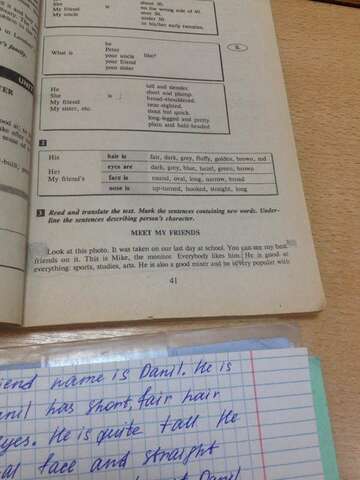 She
My friend is
My uncle
about 30.
on the wrong side of 40.
over 50.
under 30.
in his/her early twenties.
he
Peter
What is your uncle like?
your friend
your sister
He
She is
My friend
My sister, etc.
tall and slender.
short and plump.
broad-shouldered.
near-sighted.
stout but quick.
long-legged and pretty
plain and bald-headed
UNIT
2
His hair is fair, dark, grey, fluffy, golden, brown, red
Her eyes are dark, grey, blue, hazel, green, brown
My friend's face is round, oval, long, narrow, broad
nose is up-turned, hooked, straight, long
3 Read and translate the text. Mark the sentences containing new words. Under-
line the sentences describing person's character.
MEET MY FRIENDS
Look at this photo. It was taken on our last day at school. You can see my best
friends on it. This is Mike, the monitor. Everybody likes him. He is good at
everything: sports, studies, arts. He is also a good mixer and he is very popular with
41
iend name is Danil. He is
anil has short, fair hair
yes. He is quite tall. He
al face and straight
Danil